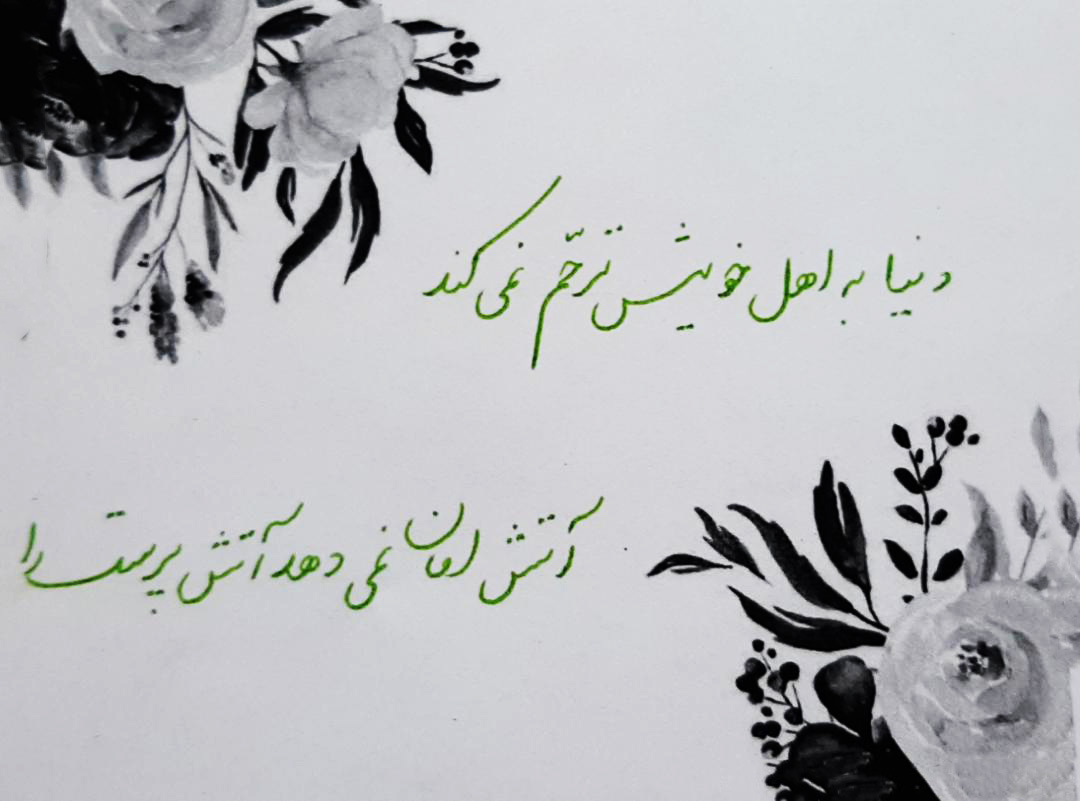 دنیا به اهل خویش ترحّم نمی کند
آتش امان نمی دهد آتش پرست را